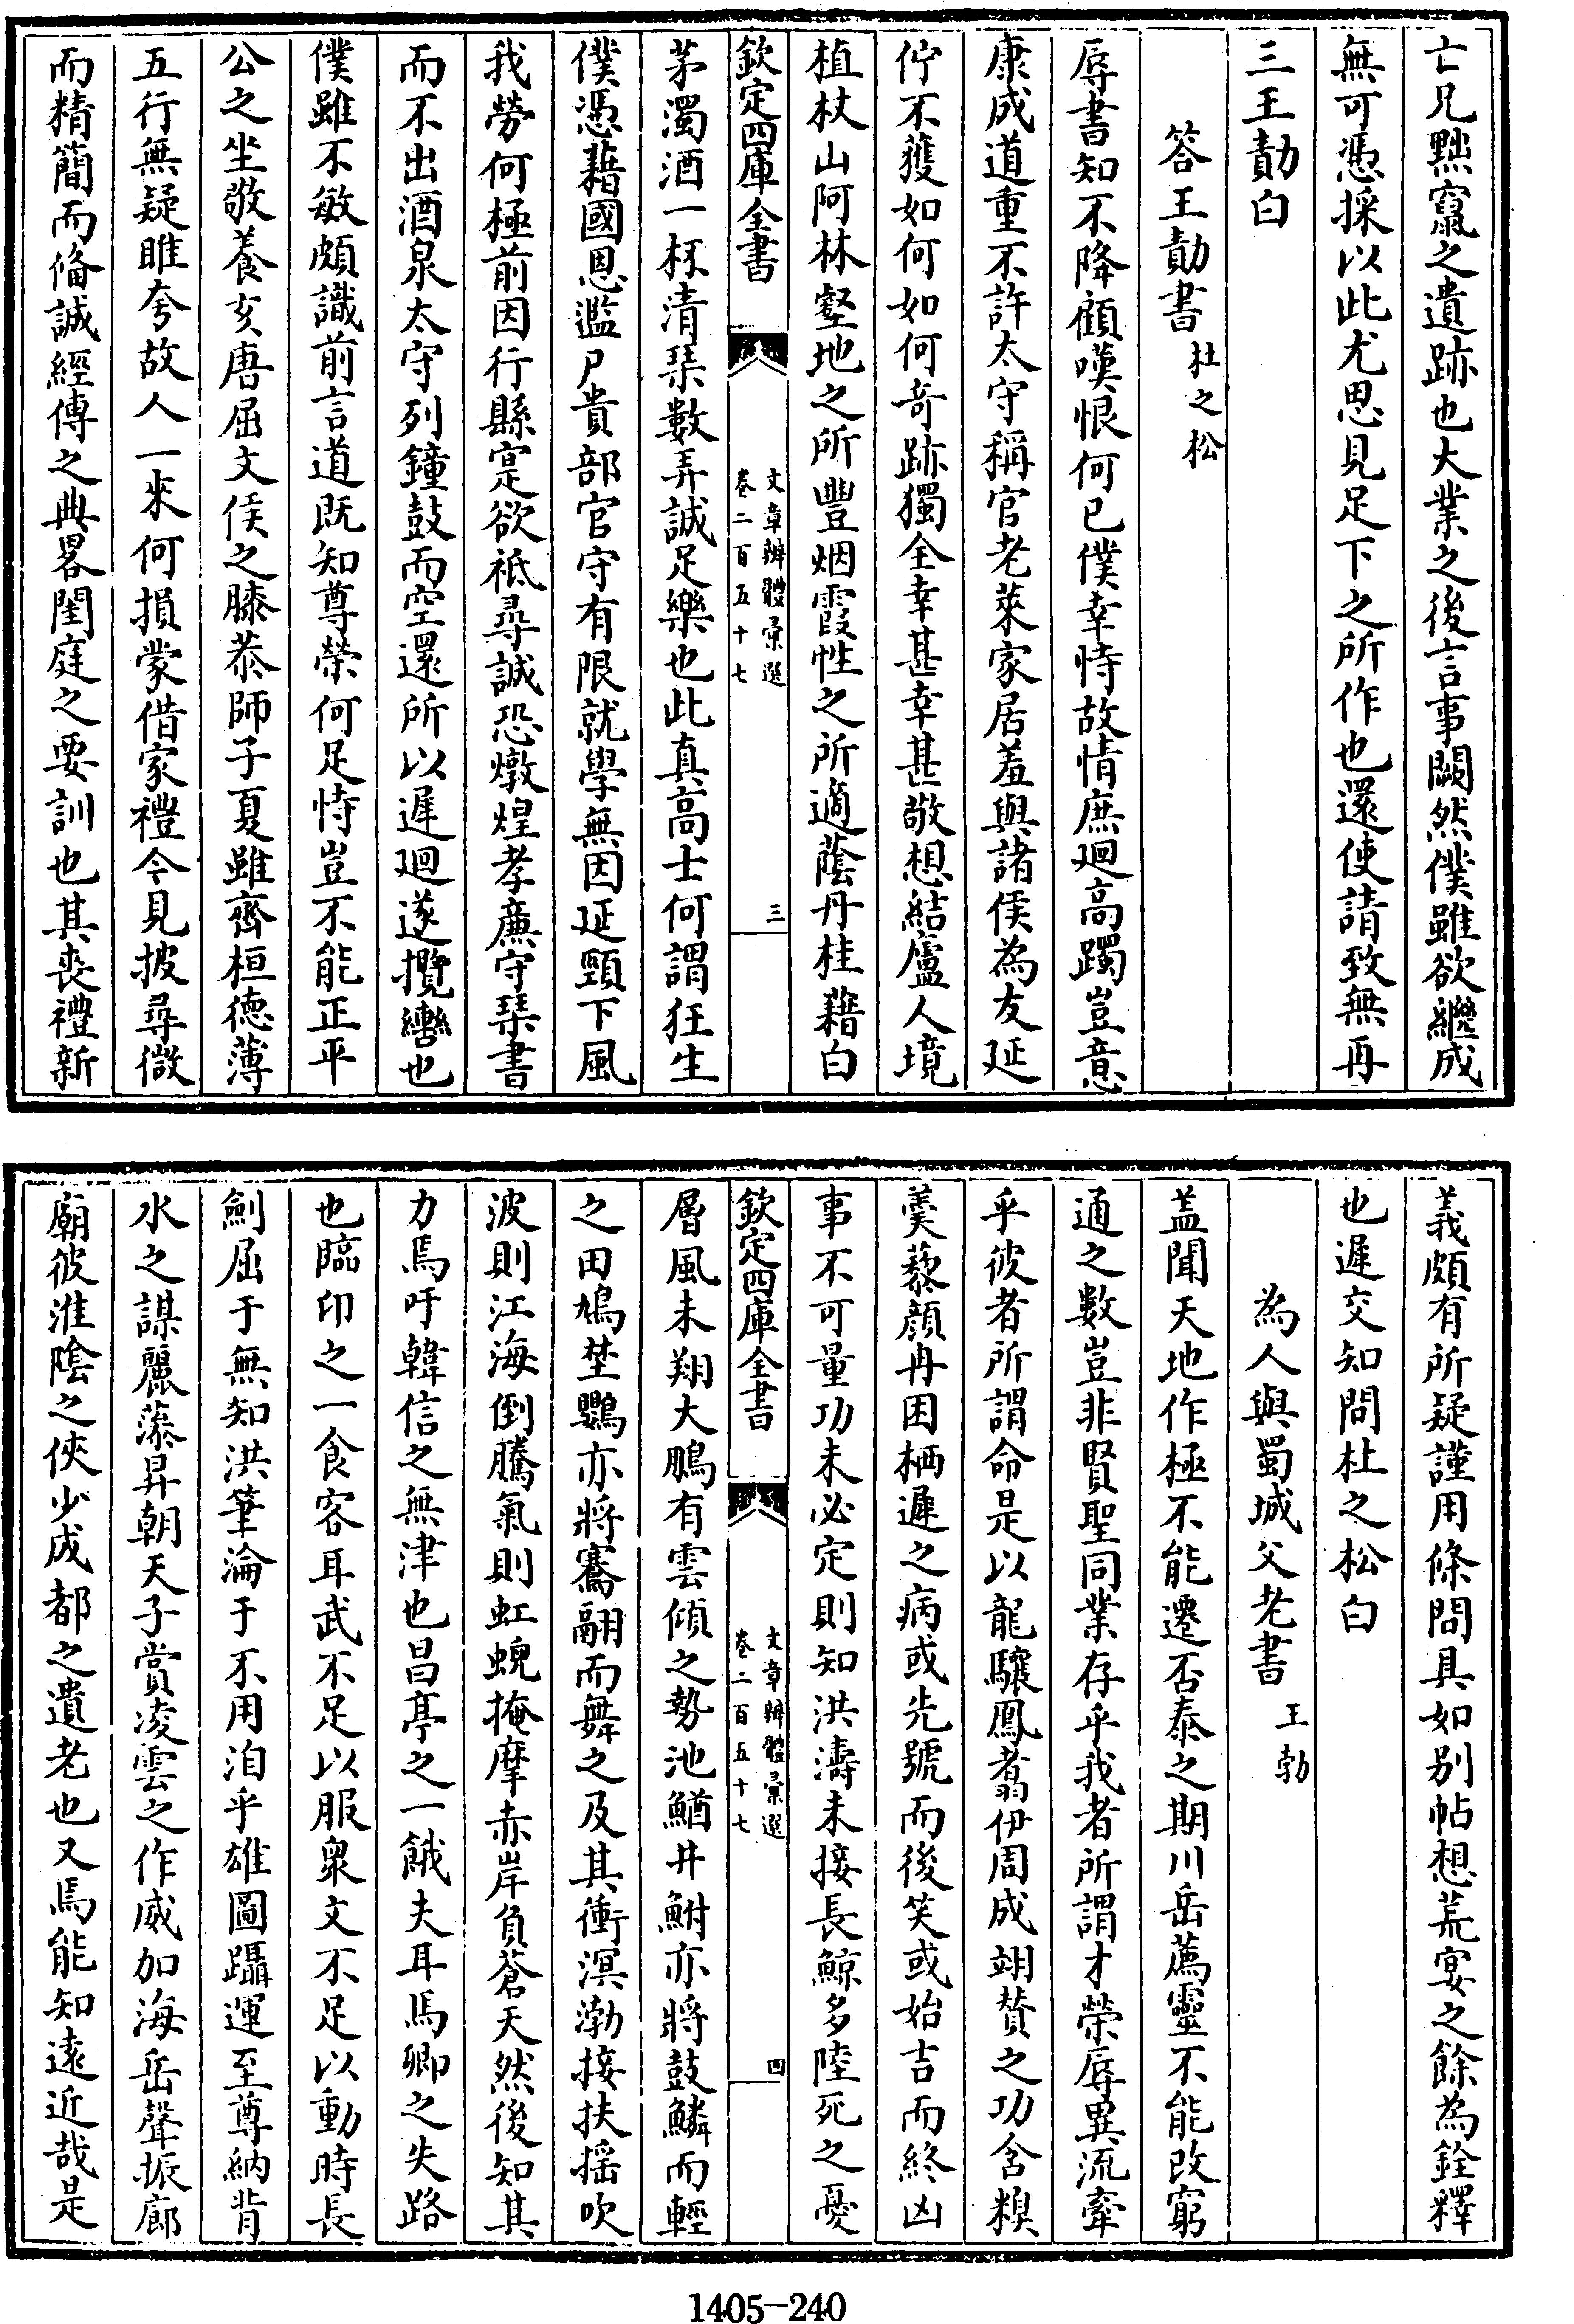 亡兄黜竄之遺跡也大業之後言事闕然僕雖欲繼成
無可憑採以此尤思見足下之所作也還使請致無再
三王勣白
答王勣書杜之松
辱書知不降顧嘆恨何已僕幸恃故情庶迴高躅豈意
康成道重不許太守稱官老萊家居羞與諸侯為友延
佇不獲如何如何奇跡獨全幸甚幸甚敬想結廬人境
植杖山阿林壑地之所豐烟霞性之所適蔭丹桂藉白
欽定四庫全書
文章辨體彙選
卷二百五十七
三
茅濁酒一杯清琹數弄誠足樂也此真高士何謂狂生
僕憑藉國恩濫尸貴部官守有限就學無因延頸下風
我勞何極前因行縣寔欲祗尋誠恐燉煌孝廉守琹書
而不出酒泉太守列鐘鼓而空還所以遲迴遂攬轡也
僕雖不敏頗識前言道既知尊榮何足恃豈不能正平
公之坐敬養亥唐屈文侯之膝恭師子夏雖齊桓德薄
五行無疑睢夸故人一來何損蒙借家禮今見披尋微
而精簡而備誠經傳之典畧閨庭之要訓也其喪禮新
義頗有所疑謹用條問具如别帖想荒宴之餘為銓釋
也遲交知問杜之松白
為人與蜀城父老書王勃
蓋聞天地作極不能遷否泰之期川岳薦靈不能改窮
通之數豈非賢聖同業存乎我者所謂才榮辱異流牽
乎彼者所謂命是以龍驤鳳翥伊周成翊賛之功含糗
羮藜顔冉困栖遲之病或先號而後笑或始吉而終凶
事不可量功未必定則知洪濤未接長鯨多陸死之憂
欽定四庫全書
文章辨體彙選
卷二百五十七
四
層風未翔大鵬有雲傾之勢池鰌井鮒亦將鼓鱗而輕
之田鳩埜鷃亦將騫翮而舞之及其衝溟渤接扶揺吹
波則江海倒騰氣則虹蜺掩摩赤岸負蒼天然後知其
力焉吁韓信之無津也昌亭之一餓夫耳馬卿之失路
也臨卭之一食客耳武不足以服衆文不足以動時長
劍屈于無知洪筆淪于不用洎乎雄圖躡運至尊納背
水之謀麗藻昇朝天子賞凌雲之作威加海岳聲振廊
廟彼淮陰之俠少成都之遺老也又焉能知遠近哉是
1405-240